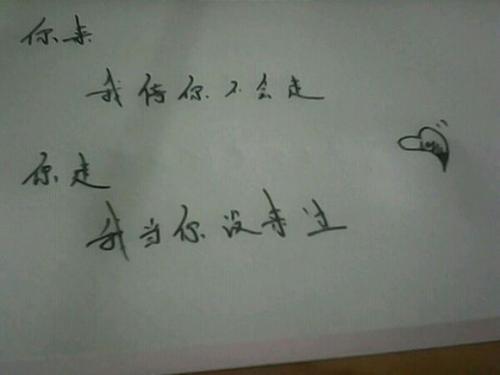 你来
我待你不会走
你走
我当你没来过